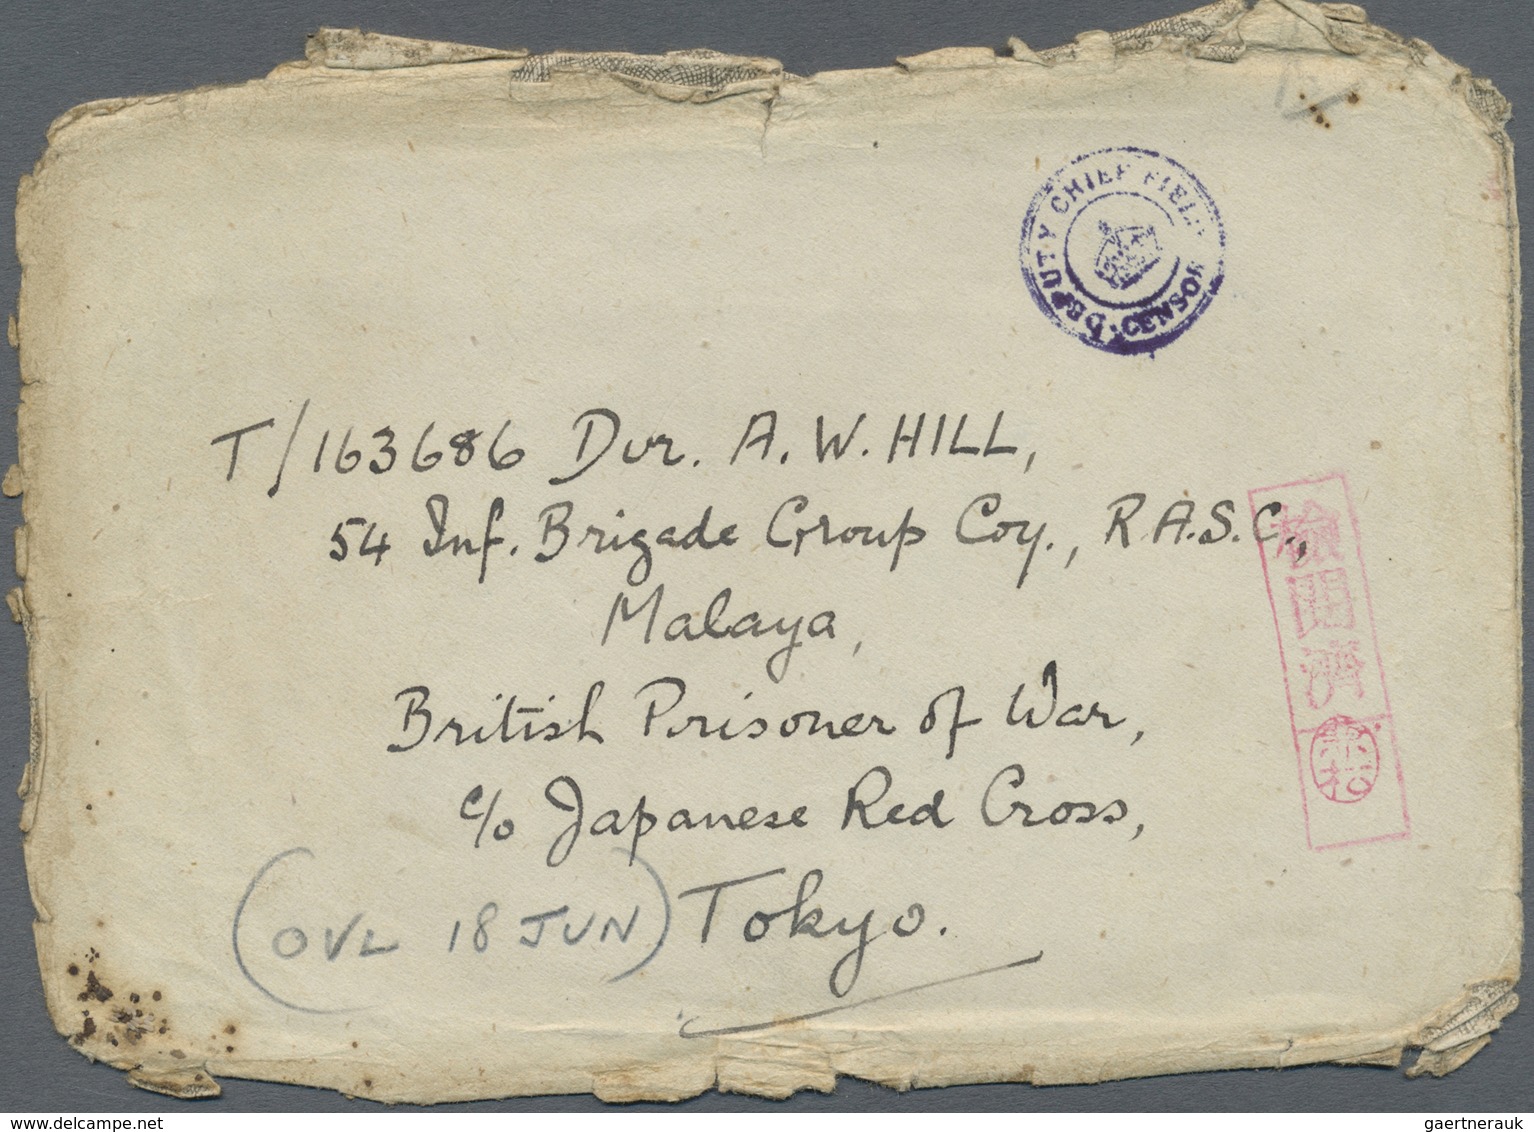 DEPUTY CHIEF FIELD CENSOR
T/163686 Dvr. A. W. HILL,
54 Inf. Brigade Group Coy., R.A.S.C.,
Malaya,
British Prisoner of War,
c/o Japanese Red Cross,
Tokyo.
(OVL 18 JUN)
檢閲濟
www.delcampe.net
gaertnerauk